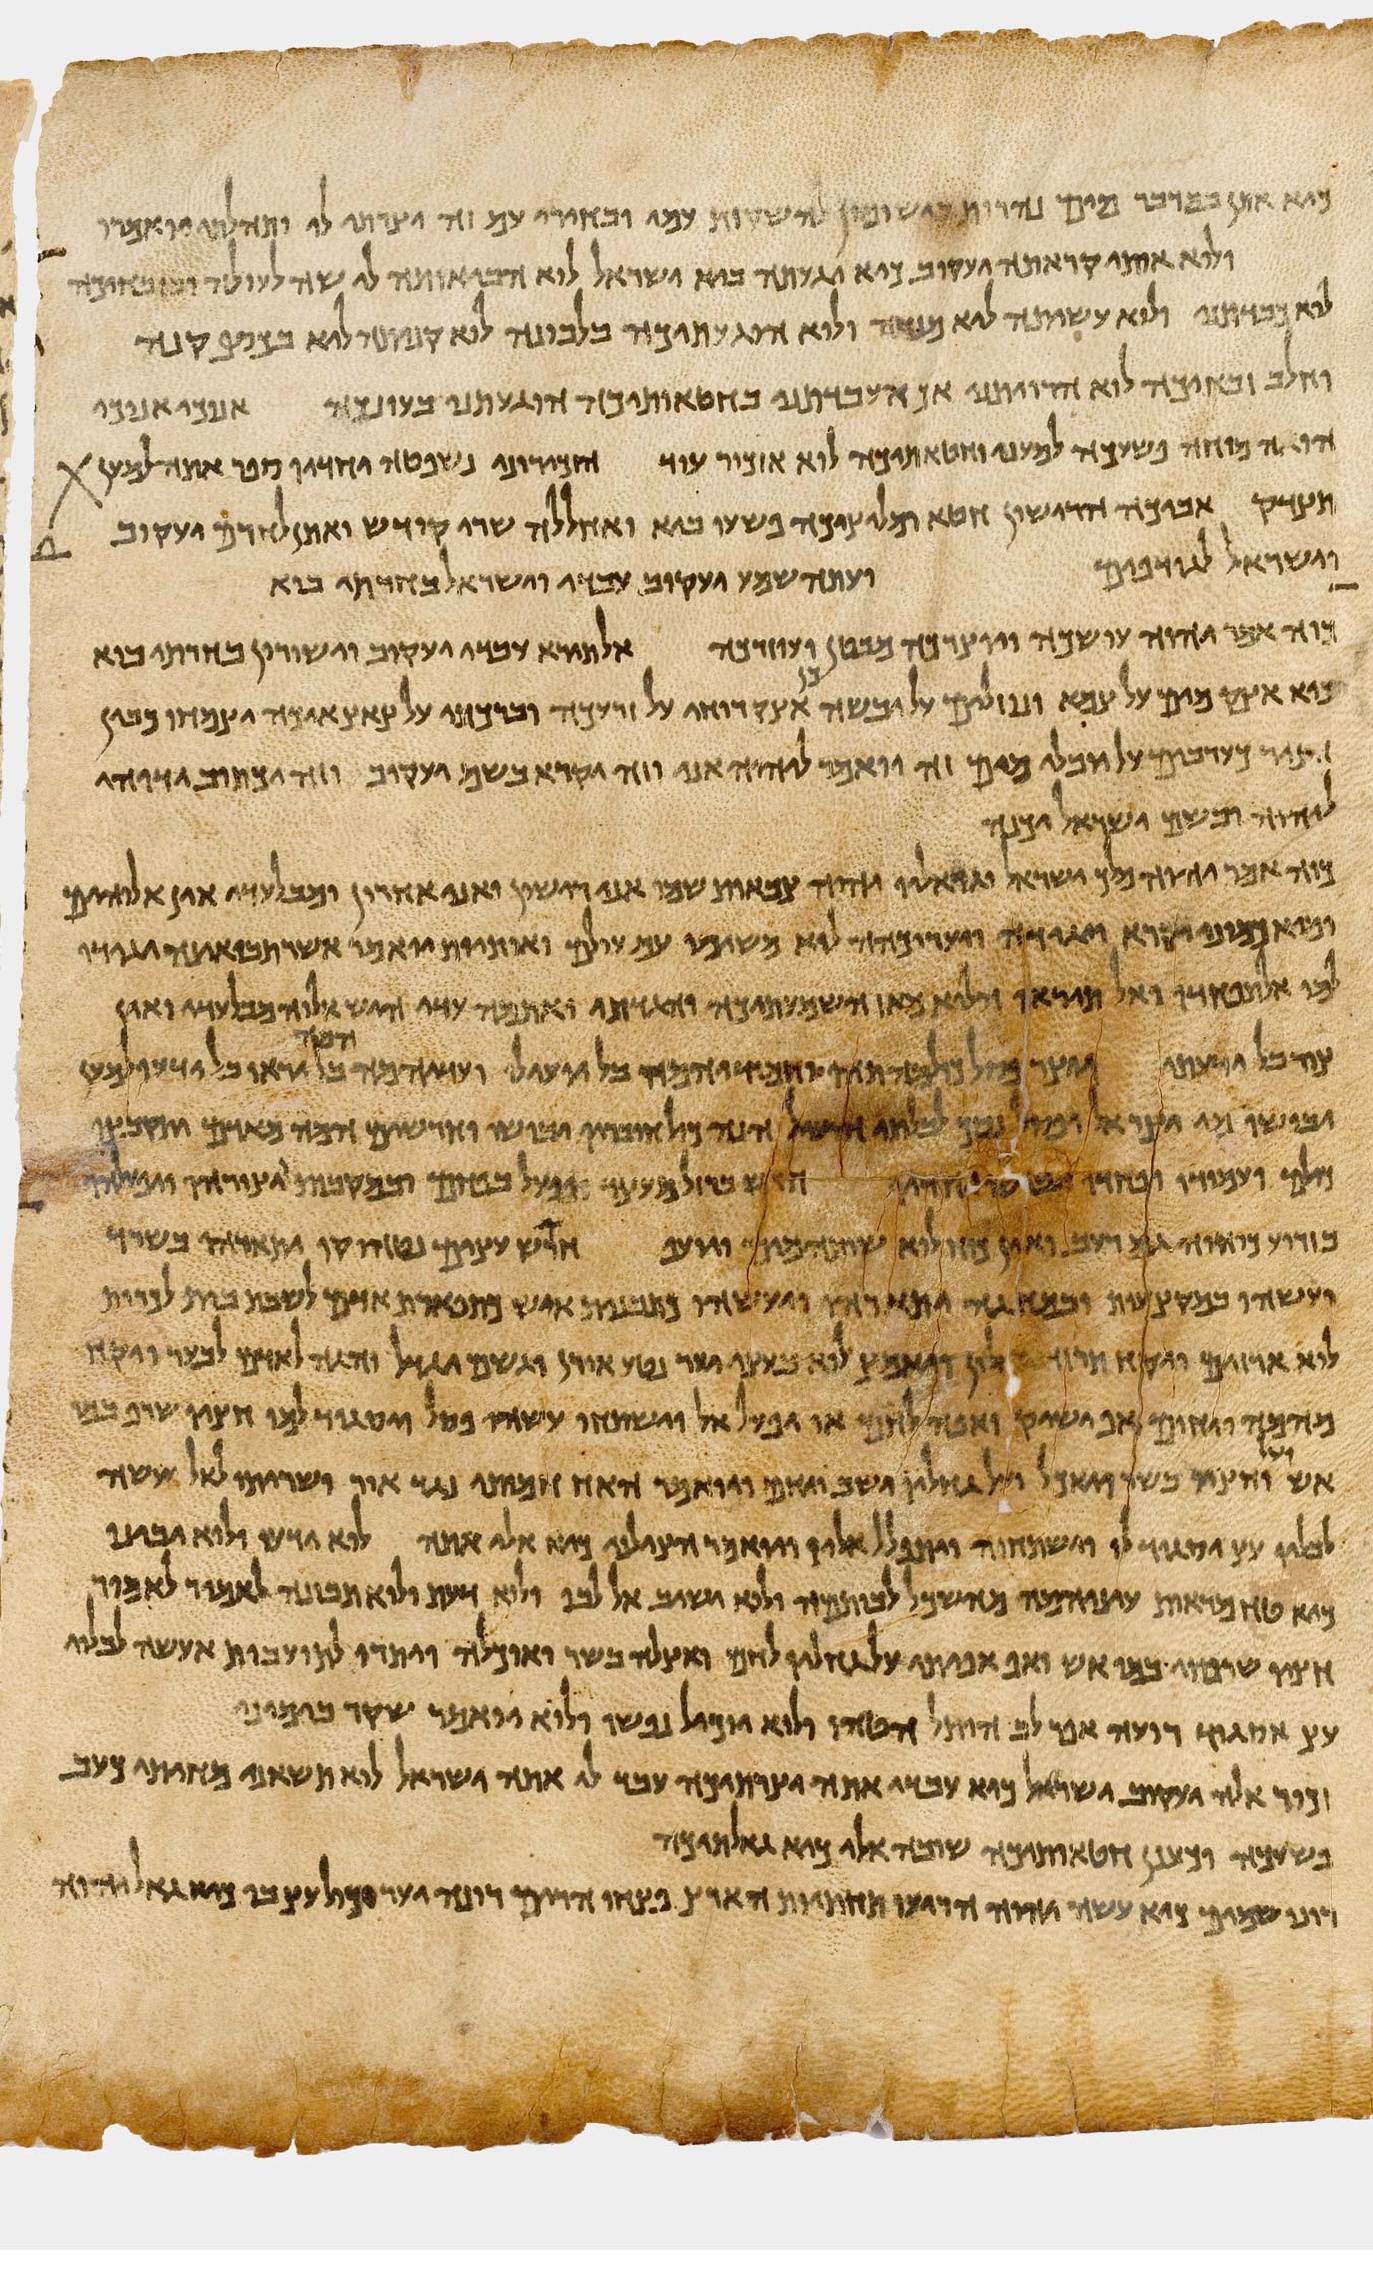 כיא אתן במדבר מים נהרות בישומון להשקות עמי ובחירי עם זה יצרתי לי ותהלתי יואמרו
ולוא אותי קראתה יעקוב כיא יגעתה ביא ישראל לוא הביאותה לי שה לעולה ובזבחיכה
לוא כבדתני ולוא עשיתה ליא מנחה ולוא הוגעתיכה בלבונה לוא קניתה ליא בכסף קנה
וחלב זבחיכה לוא הרויתני אך העבדתני בחטאותיכה הוגעתני בעוונכה אנוכי אנוכי
הואה מוחה פשעכה למעני וחטאתיכה לוא אזכור עוד הזכירוני נשפטה יחדיו ספר אתה למען
תצדק אביכה הרישון חטא ומליציכה פשעו ביא ואחללה שרי קודש ואתן לחרם יעקוב
וישראל לגודפים ועתה שמע יעקוב עבדי וישראל בחרתי בוא
כוה אמר יהוה עושכה ויוצרכה מבטן ועוזרכה אל תירא עבדי יעקוב וישורון בחרתי בוא
כיא אצק מים על צמא ונוזלים על יבשה כן אצק רוחי על זרעכה וברכותי על צאצאיכה וצמחו כבין
חציר כערבים על יבלי מים זה יואמר ליהוה אני וזה יקרא בשם יעקוב וזה יכתוב ידוהי
ליהוה ובשם ישראל יכנה
כוה אמר יהוה מלך ישראל וגואלו יהוה צבאות שמו אני רישון ואני אחרון ומבלעדי אין אלוהים
ומיא כמוני יקרא ויגידה ויעריכהה לוא משומי עם עולם ואותיות יואמר אשר תבואינה יגידו
למו אל תפחדו ואל תיראו הלוא מאז השמעתיכה והגדתי ואתמה עדי היש אלוה מבלעדי ואין
צור בל ידעתי יוצר פסל כולם תהו וחמודיהמה בל יועילו ועדיהמה המה בל יראו בל ידעו למען
יבושו מי יצר אל ופסל נסך לבלתי הועיל הנה כול חובריו יבושו וחרשים המה מאדם יתקבצו
כולם ועמודו ופחדו יחדיו חרש ברזל מעצד ופעל בפחם ובמקבות יצורהו ויפעלהו
בזרוע כוחוה גם רעב ואין כוח ולוא שותה מים ויועף חרש עצים נטהו קו יתארהו בשרד
ויעשהו במקצעות ובמחוגה יתארהו ויעשהו כתבנית איש כתפארת אדם לשבת בית לכרות
לוא ארזים ויקח תרזה ואלון ויאמץ לוא בעצי יער נטע אורן וגשם יגדל והיה לאדם לבער ויקח
מהמה ויחום אף ישיק ואפה לחם או יפעל אל וישתחו עשה פסל ויסגוד למו חציו שרף במו
אש ועל חציו בשר יואכל ועל גחליו ישב ויחם ויואמר האח חמותי נגד אור ושריתו לאל עשה
לבלוי עץ יסגוד לו וישתחוה ויתפלל אליו ויואמר הצילני כיא אלי אתה לוא ידעו ולוא יבינו
כיא טח מראות עיניהמה מהשכל לבותמה ולוא ישוב אל לבו ולוא דעת ולוא תבונה לאמור לאמור
חציו שרפתי במו אש ואף אפיתי על גחליו לחם ואצלה בשר ואוכלה ויתרו לתועבות אעשה לבלוי
עץ אסגוד רועה אפר לב הותל הטהו ולוא יוכיל נפשו ולוא יואמר שקר בימיני
זכור אלה יעקוב ישראל כיא עבדי אתה יצרתיכה עבד לי אתה ישראל לוא תשאני מחיתי כעב
פשעכה וכענן חטאותיכה שובה אלי כיא גאלתיכה
רונו שמים כיא עשה יהוה הריעו תחתיות הארץ פצחו הרים רונה יער וכול עץ בו כיא גאל יהוה